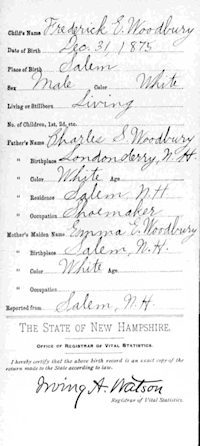 Child's Name Frederick E. Woodbury
Date of Birth Dec. 31, 1875
Place of Birth Salem
Sex Male Color White
Living or Stillborn Living
No. of Children, 1st, 2d, etc.
Father's Name Charles S. Woodbury
" Birthplace Londonderry, N.H.
" Color White Age
" Residence Salem, N.H.
" Occupation Shoemaker
Mother's Maiden Name Emma E. Woodbury
" Birthplace Salem, N.H.
" Color White Age
" Occupation
Reported from Salem, N.H.
THE STATE OF NEW HAMPSHIRE.
OFFICE OF REGISTRAR OF VITAL STATISTICS.
I hereby certify that the above birth record is an exact copy of the
return made to the State according to law.
Irving A. Watson
Registrar of Vital Statistics.